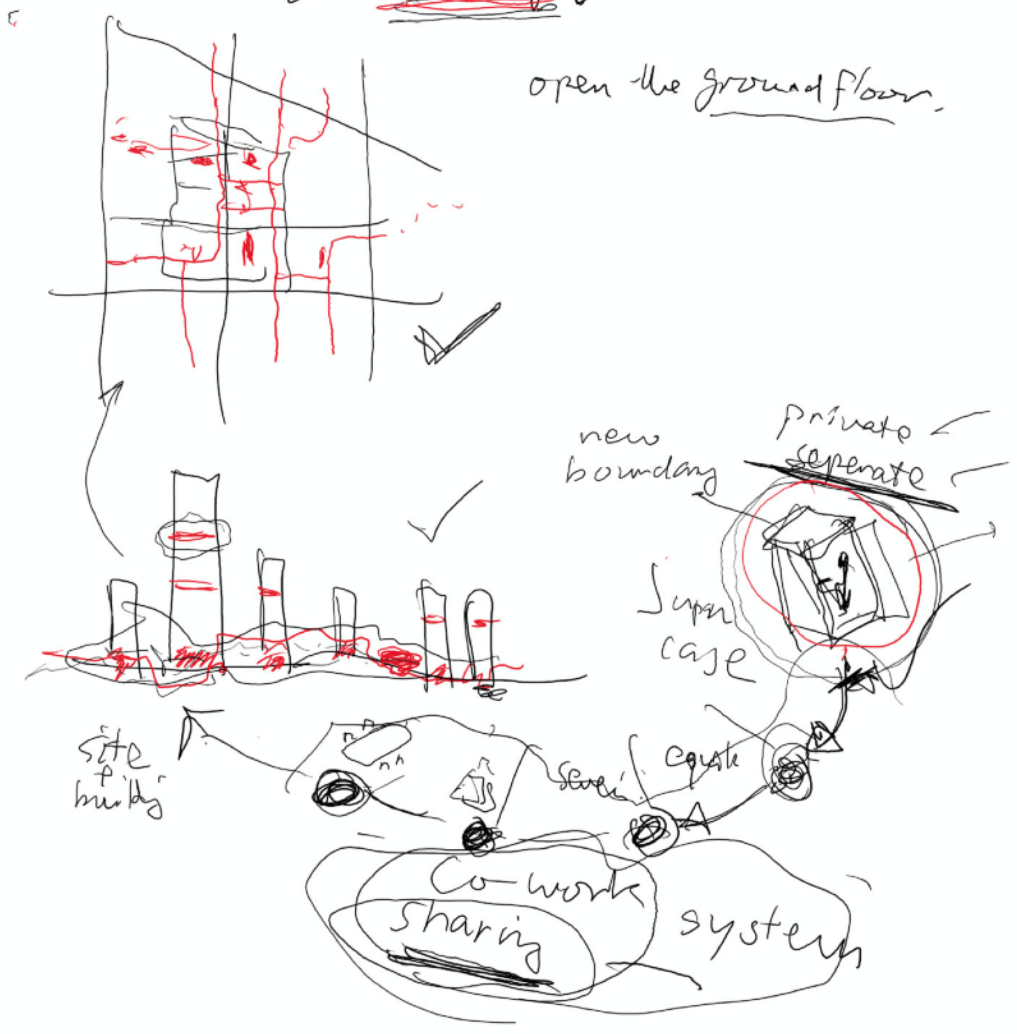 open the ground floor.
private
seperate
new
boundary
Super
case
site
co-work
sharing
system